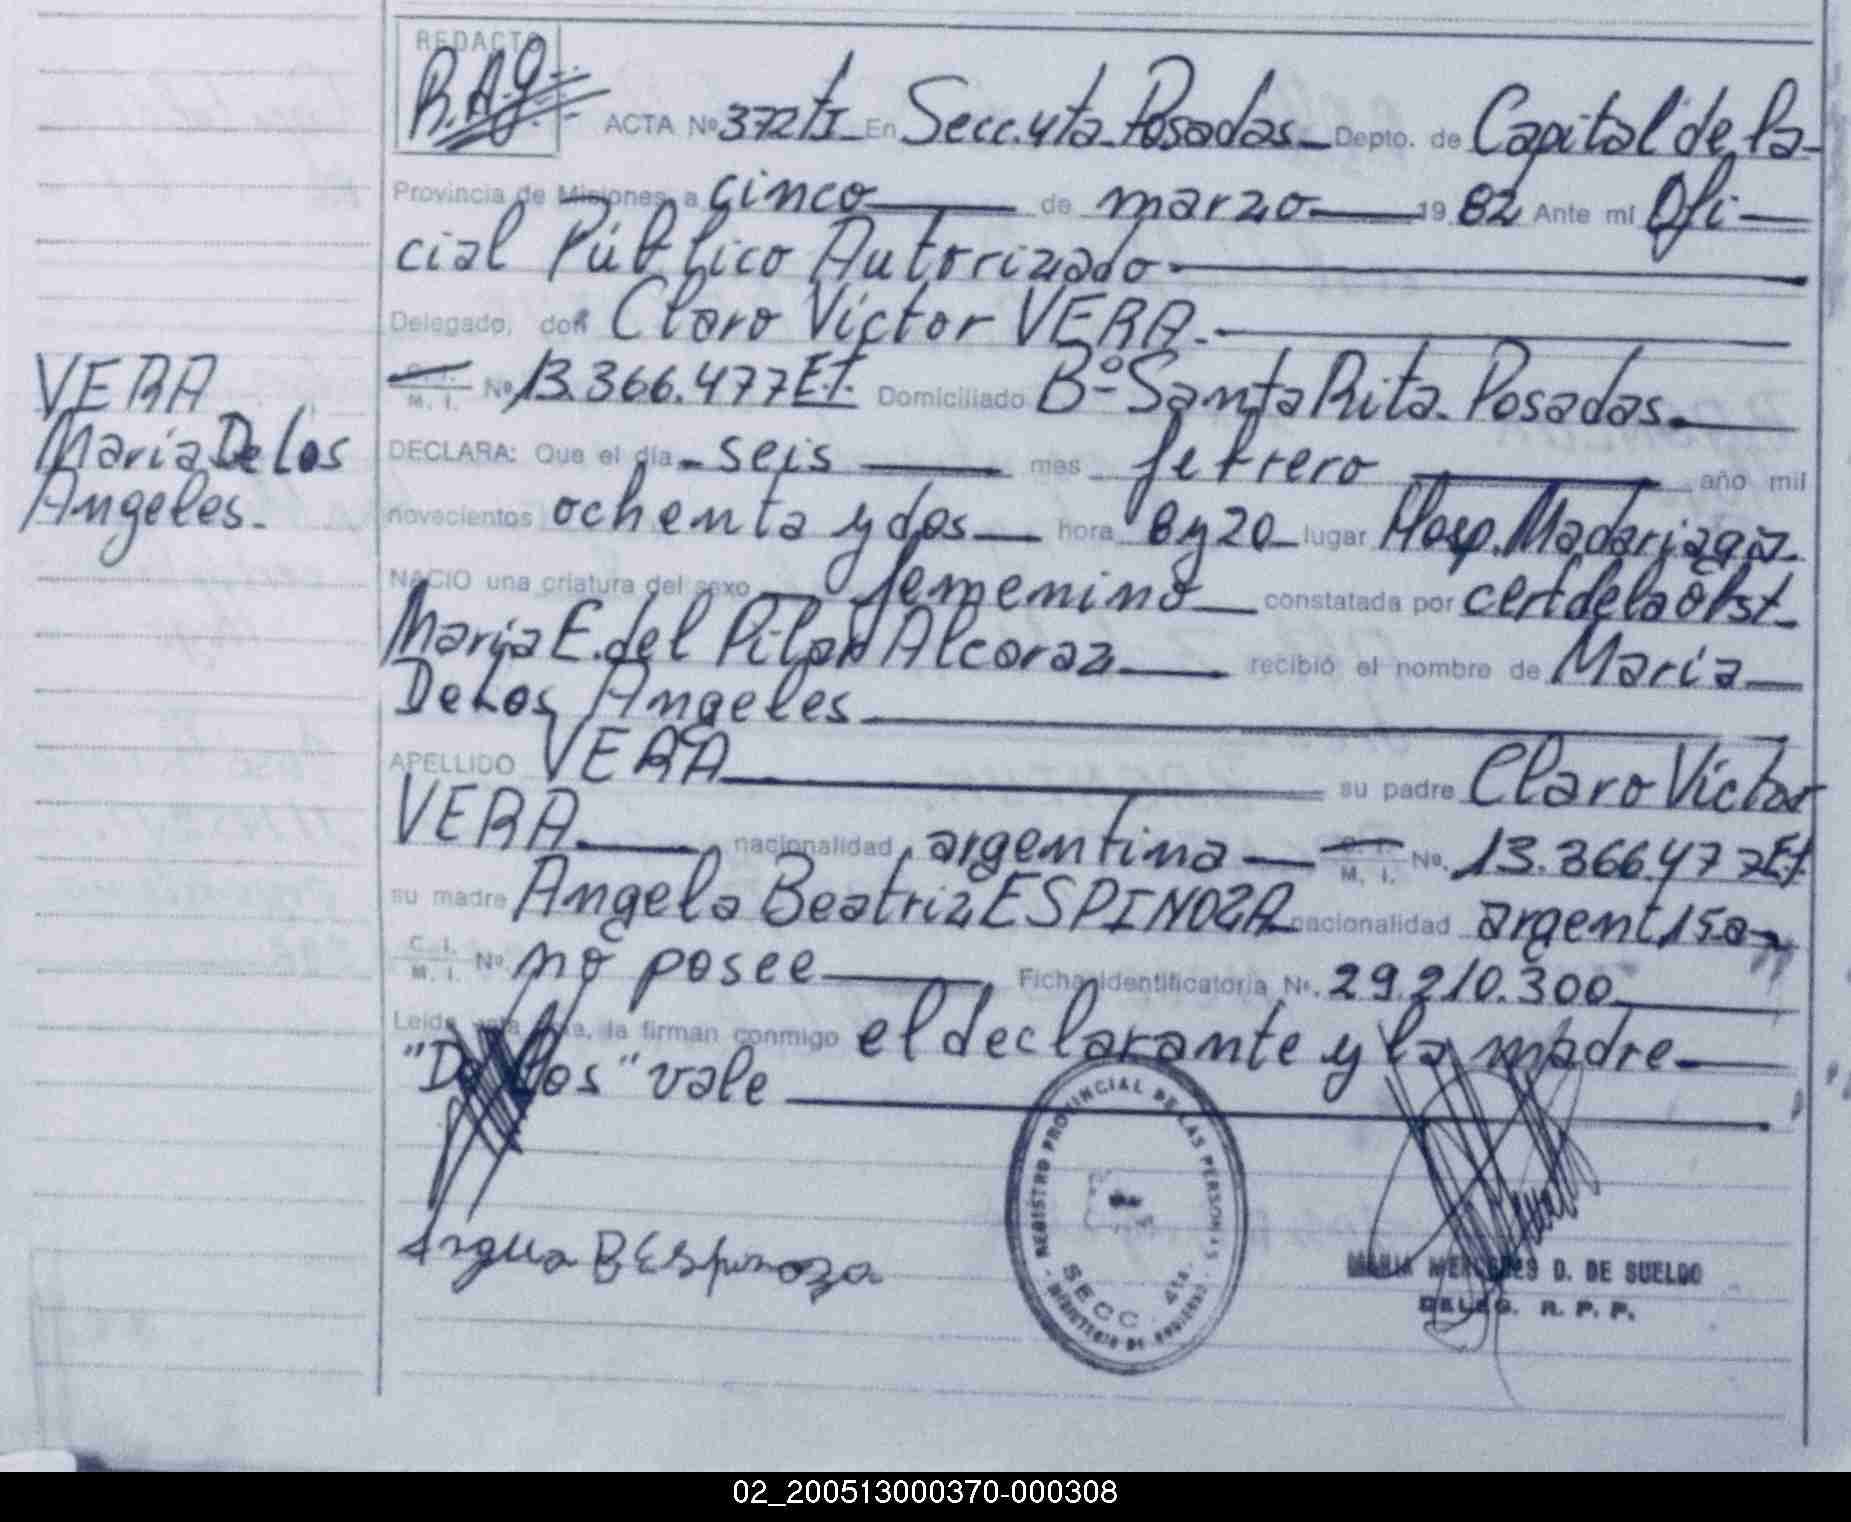 REDACTO
B.A.G.
ACTA Nº 372 tI En Secc. 4ta. Posadas Depto. de Capital de la
Provincia de Misiones, a cinco de marzo 19 82 Ante mi Ofi
cial Público Autorizado
Delegado, don Claro Victor VERA.
C. I. M. I. Nº 13.366.477 Et. Domiciliado Bº Santa Rita. Posadas.
VERA
María De los
Angeles.
DECLARA: Que el día seis mes febrero año mil
novecientos ochenta y dos hora 8 y 20 lugar Hosp. Madariaga
NACIO una criatura del sexo femenino constatada por cert de la obst.
Maria E. del Pilar Alcaraz recibió el nombre de María
De Los Angeles
APELLIDO VERA su padre Claro Victor
VERA nacionalidad argentina C. I. M. I. No. 13.366.477 Et.
su madre Angela Beatriz ESPINOZA nacionalidad argentina
C. I. M. I. Nº no posee Ficha identificatoria Nº. 29.210.300
Leída esta acta, la firman conmigo el declarante y la madre
"De los" vale
Angela B Espinoza
REGISTRO PROVINCIAL DE LAS PERSONAS
SECC. 4ta.
MINISTERIO DE GOBIERNO
MARIA MERCEDES D. DE SUELDO
DELEG. R. P. P.
02_200513000370-000308